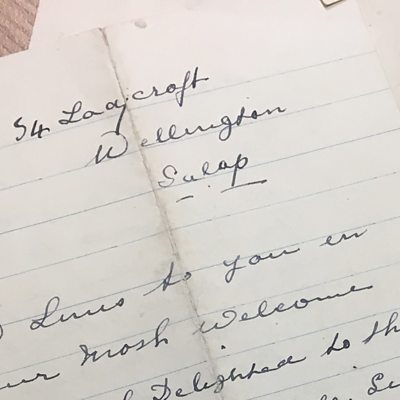 54 Ladycroft
Wellington
Salop
Lines to you in
our most Welcome
Delighted to th